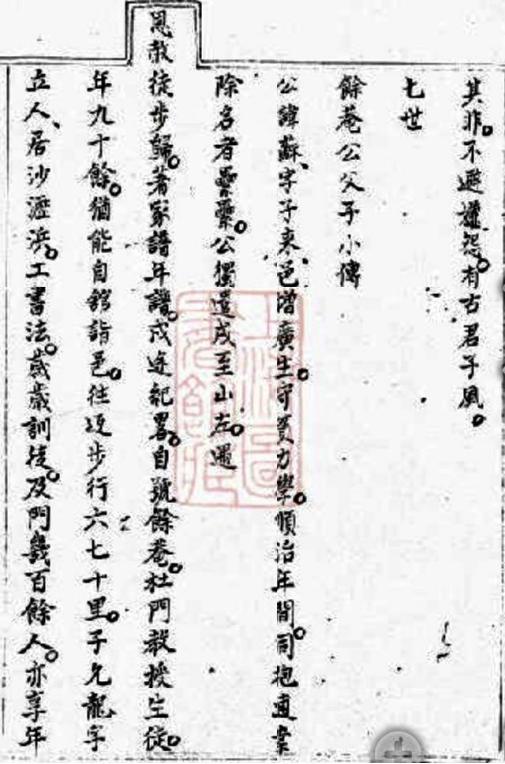 其非。不避嫌怨。有古君子風。
七世
餘菴公父子小傳
公諱蘇、字子來、邑增廣生。守貧力學。順治年間。同抱逋案
除名者纍纍。公獨遣戍至山左。遇
恩赦徒步歸。著家譜年譜。戍途紀畧。自號餘菴。杜門教授生徒。
年九十餘。猶能自舘詣邑。往返步行六七十里。子允龍字
立人、居沙濕浜。工書法。歲歲訓徒。及門幾百餘人。亦享年